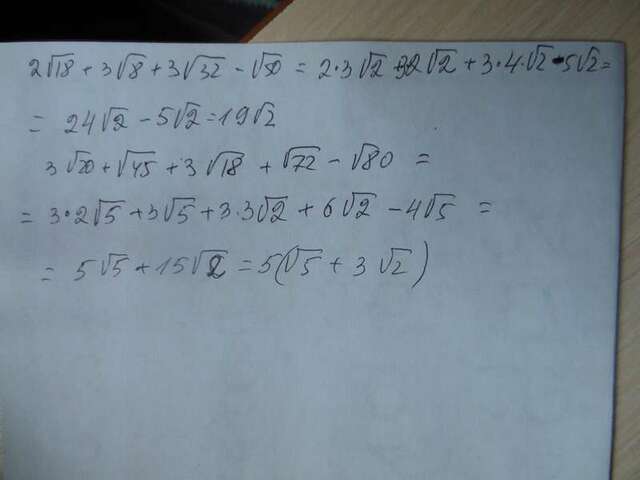 2√18 + 3√8 + 3√32 - √50 = 2·3√2 + 3·2√2 + 3·4·√2 - 5√2 =
= 24√2 - 5√2 = 19√2
3√20 + √45 + 3√18 + √72 - √80 =
= 3·2√5 + 3√5 + 3·3√2 + 6√2 - 4√5 =
= 5√5 + 15√2 = 5(√5 + 3√2)